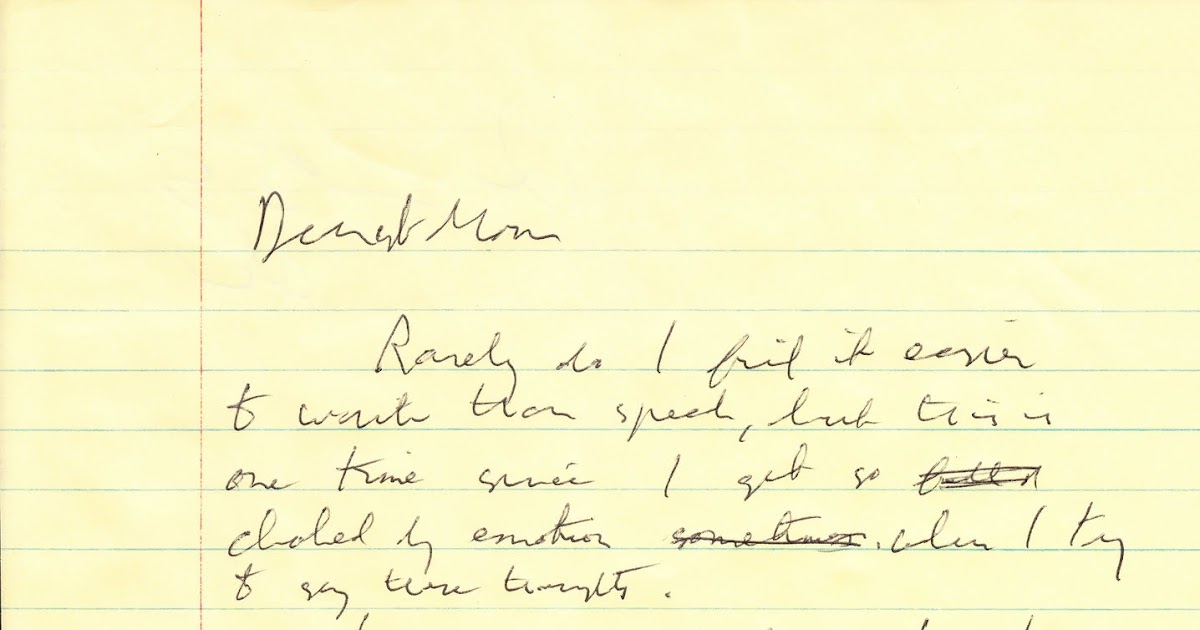 Dearest Mom
Rarely do I find it easier
to write than speak, but this is
one time since I get so
choked by emotion sometimes when I try
to say these thoughts.